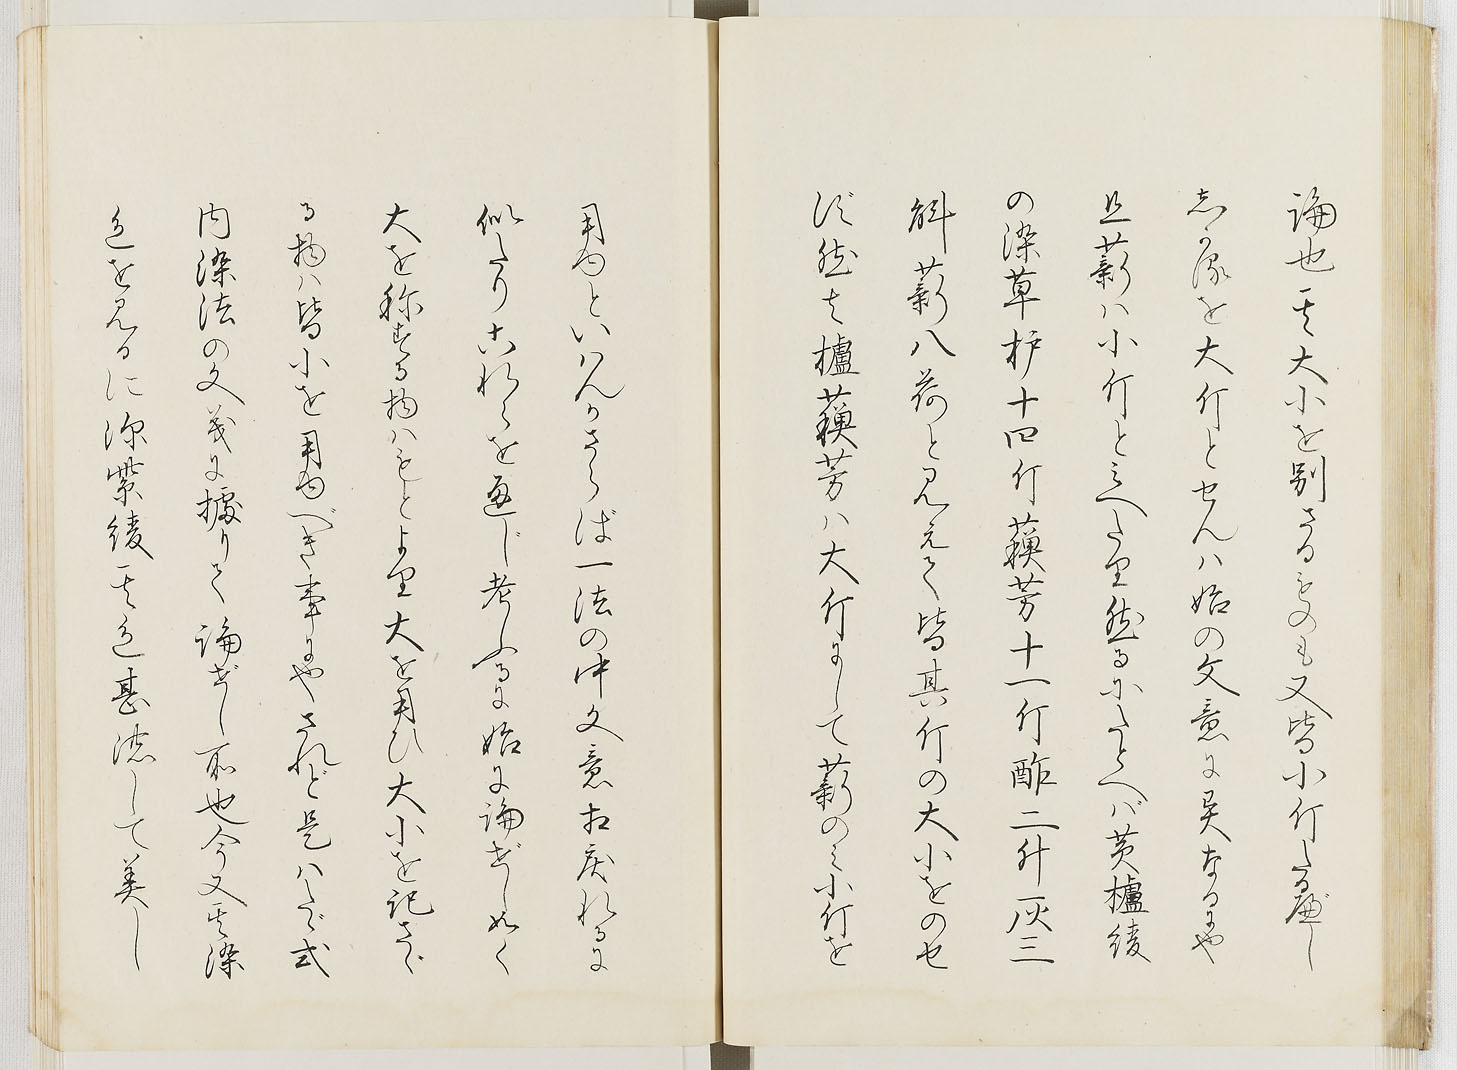 論也其大小を別さるものも又皆小斤たる歟し
志か深を大斤とせんハ始の文意に異なるにや
且薪ハ小斤とミへたり然るにたとへバ黄櫨綾
の染草栌十四斤蘓芳十一斤酢二升灰三
斛薪八荷と見えて皆其斤の大小をのせ
ず然は櫨蘓芳ハ大斤にして薪のミ小斤を
用ゆといハんかさらば一法の中文意相戻れるに
似たりこれらを通じ考ふるに始に論ぜし如く
大を称する物ハもとより大を用ひ大小を記さゞ
る物ハ皆小を用ゆべき事にやされど是ハたゞ式
内染法の文義に據りて論ぜし所也今又其染
色を見るに深紫綾其色甚濃して美し